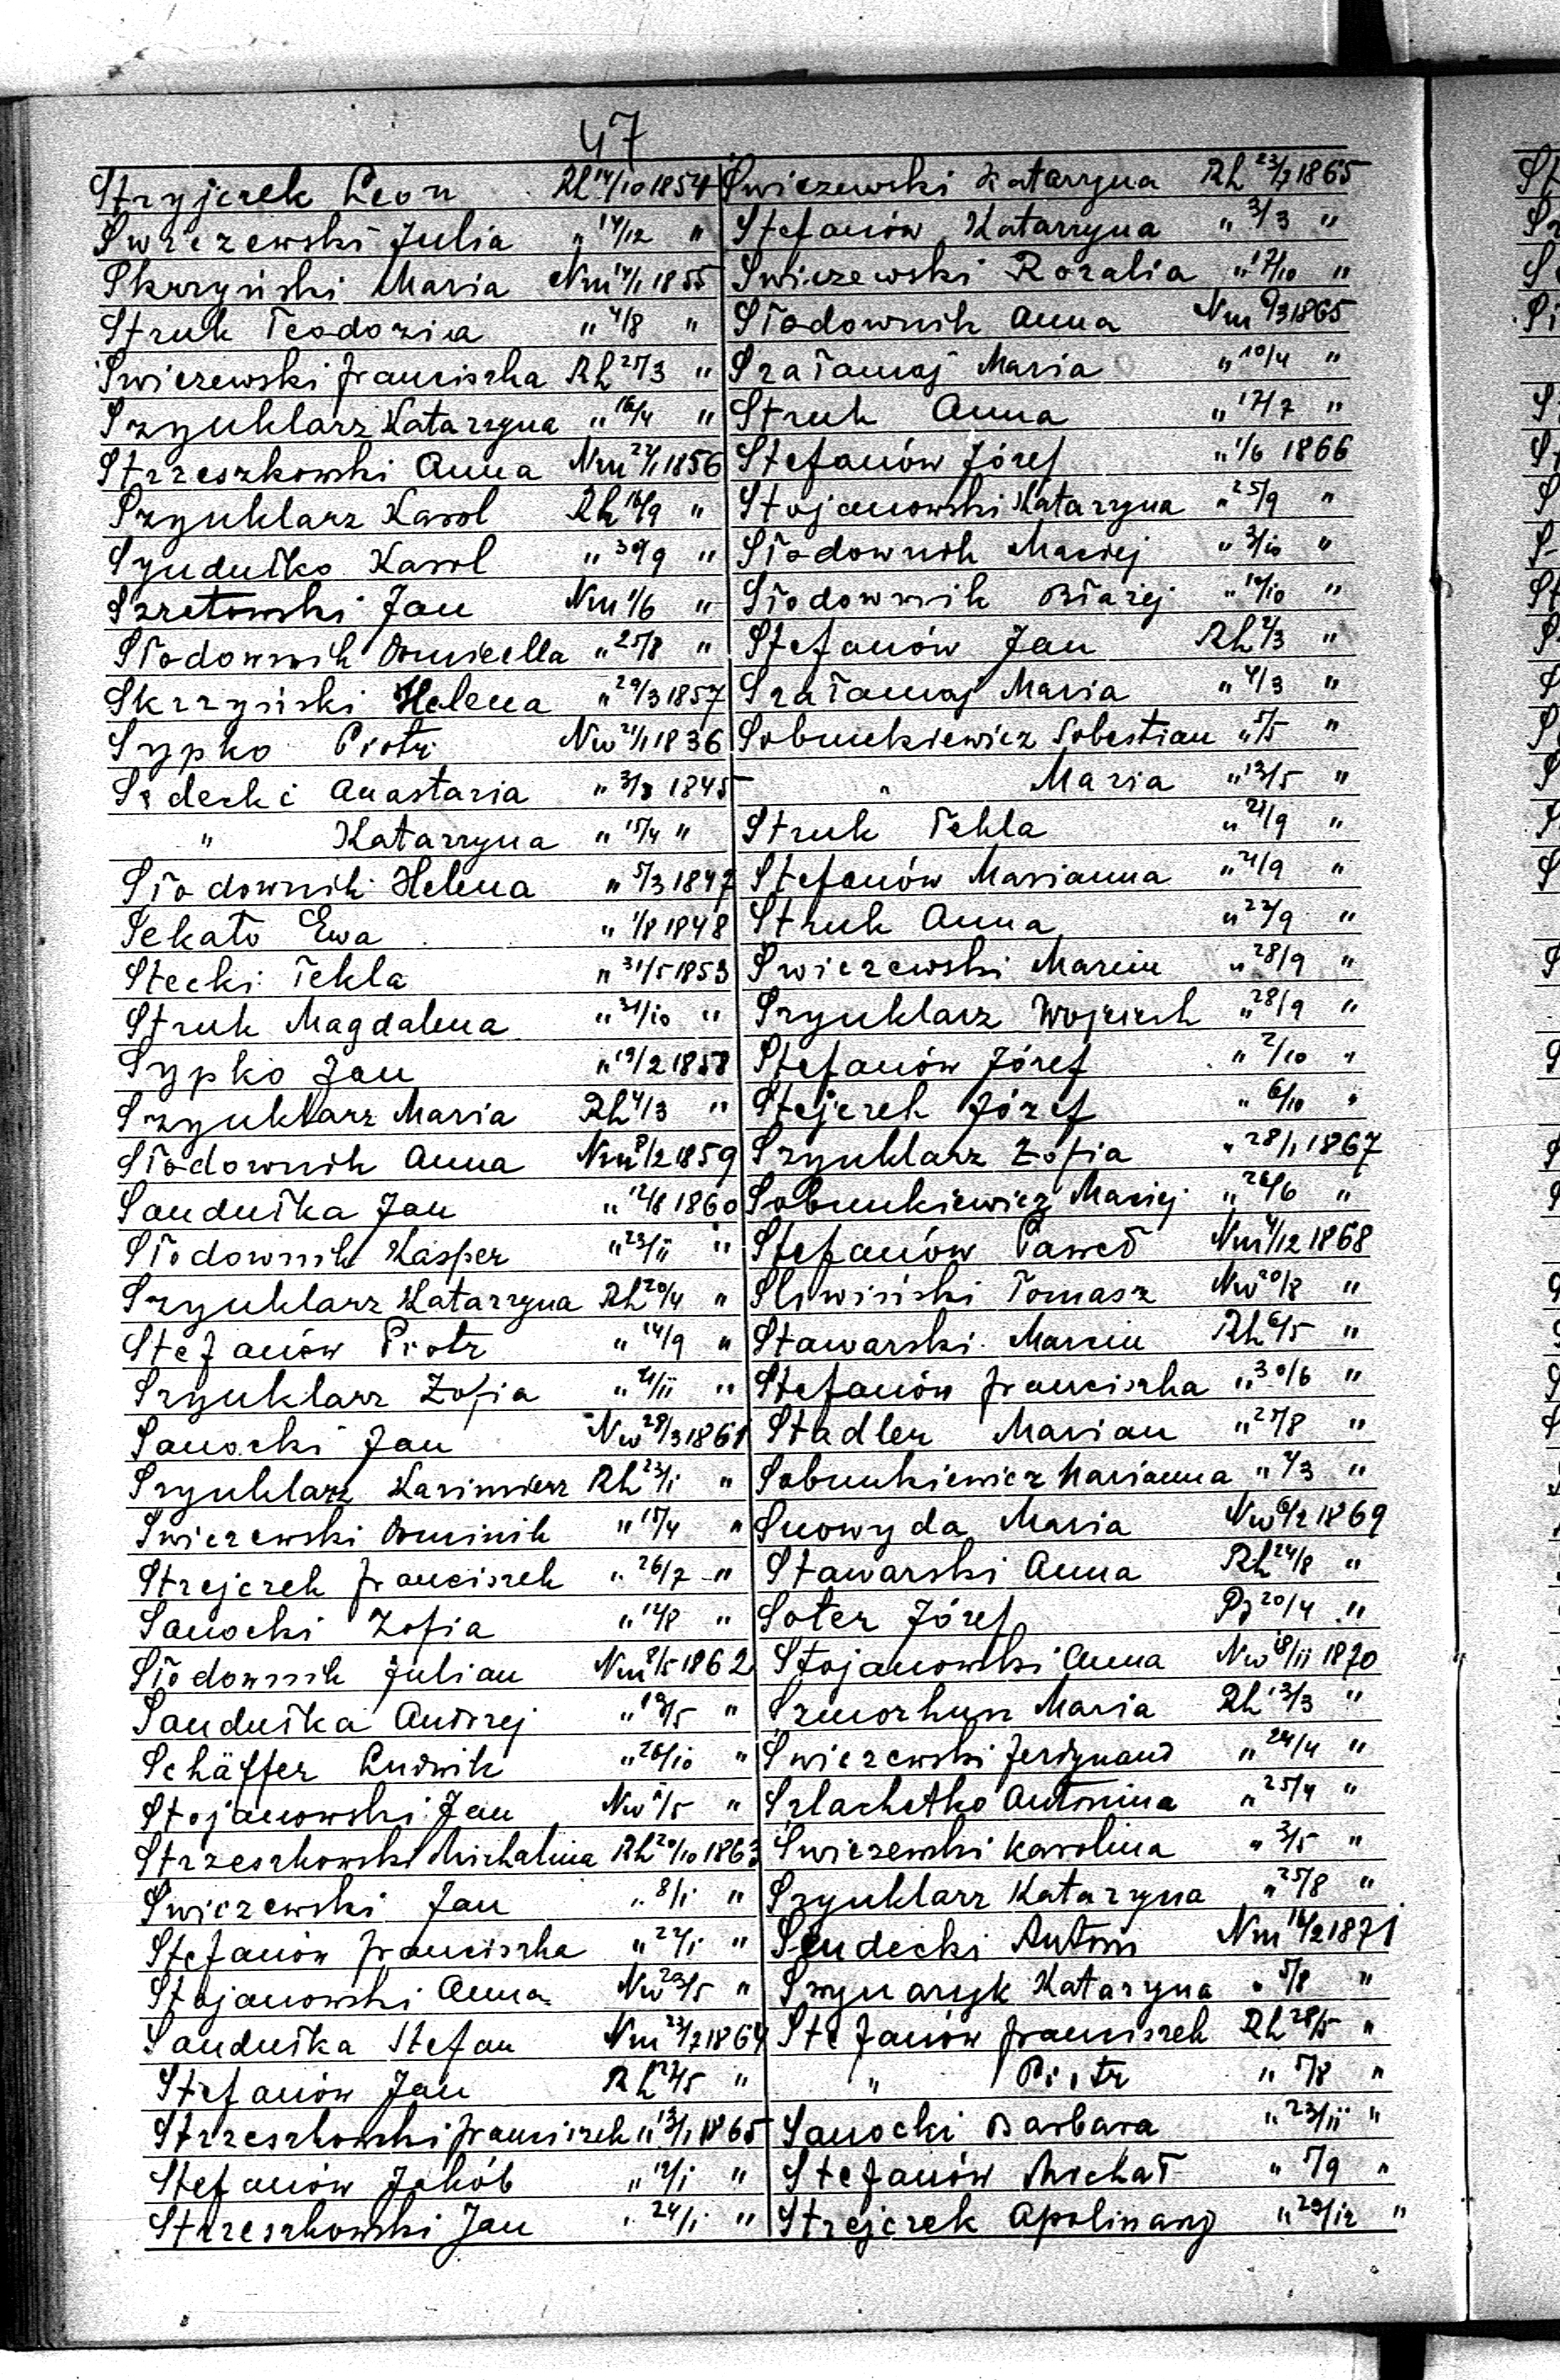 47
Stryjczek Leon Rh 14/10 1854
Swiczewski Julia " 14/12 "
Skrzyński Maria Nm 14/1 1855
Struk Teodozia " 4/8 "
Swiczewski Franciszka Rh 25/3 "
Szynklarz Katarzyna " 16/4 "
Strzeszkowski Anna Nm 22/1 1856
Szynklarz Karol Rh 16/9 "
Synduśko Karol " 30/9 "
Szretowski Jan Nm 1/6 "
Słodownik Domicella " 25/8 "
Skrzyński Helena " 29/3 1857
Sypko Piotr Nw 21/1 1836
Sądecki Anastazia " 3/3 1845
" Katarzyna " 15/4 "
Słodownik Helena " 5/3 1847
Sekato Ewa " 1/8 1848
Stecki Tekla " 31/5 1853
Struk Magdalena " 31/10 "
Sypko Jan " 19/2 1858
Szynklarz Maria Rh 4/3 "
Słodownik Anna Nm 8/2 1859
Sanduśka Jan " 12/8 1860
Słodownik Kasper " 23/11 "
Szynklarz Katarzyna Rh 20/4 "
Stefanów Piotr " 14/9 "
Szynklarz Zofia " 21/11 "
Sanocki Jan Nw 28/3 1861
Szynklarz Kazimierz Rh 23/1 "
Swiczewski Dominik " 15/4 "
Strejczek Franciszek " 26/7 "
Sanocki Zofia " 12/8 "
Słodownik Julian Nm 8/5 1862
Sanduśka Andrzej " 19/5 "
Schäffer Ludwik " 26/10 "
Stojanowski Jan Nw /5 "
Strzeszkowski Michalina Rh 20/10 1863
Swiczewski Jan " 8/1 "
Stefanów Franciszka " 22/1 "
Stojanowski Anna Nw 23/5 "
Sanduśka Stefan Nm 23/7 1864
Stefanów Jan Rh 22/5 "
Strzeszkowski Franciszek " 13/1 1865
Stefanów Jakób " 12/1 "
Strzeszkowski Jan " 24/1 "
Swiczewski Katarzyna Rh 23/7 1865
Stefanów Katarzyna " 3/3 "
Swiczewski Rozalia " 17/10 "
Słodownik Anna Nm 9/3 1865
Szałamaj Maria " 10/4 "
Struk Anna " 17/7 "
Stefanów Józef " 1/6 1866
Stojanowski Katarzyna " 25/9 "
Słodownik Maciej " 3/10 "
Słodownik Błażej " 14/10 "
Stefanów Jan Rh 2/3 "
Szałamaj Maria " 4/3 "
Sobunkiewicz Sobestian " 5/5 "
" Maria " 13/5 "
Struk Tekla " 21/9 "
Stefanów Marianna " 21/9 "
Struk Anna " 22/9 "
Swiczewski Marcin " 28/9 "
Szynklarz Wojciech " 28/9 "
Stefanów Józef " 2/10 "
Stejczek Józef " 6/10 "
Szynklarz Zofia " 28/1 1867
Sobunkiewicz Maciej " 26/6 "
Stefanów Paweł Nm 4/12 1868
Sliwiński Tomasz Nw 20/8 "
Stawarski Marcin Rh 6/5 "
Stefanów Franciszka " 30/6 "
Stadler Marian " 25/8 "
Sobunkiewicz Marianna " 7/3 "
Snowyda Maria Nw 6/2 1869
Stawarski Anna Rh 24/8 "
Soter Józef Pj 20/4 "
Stojanowski Anna Nw 18/11 1870
Szmorhun Maria Rh 13/3 "
Swiczewski Ferdynand " 24/4 "
Szlachetko Antonina " 25/4 "
Swiczewski Karolina " 3/5 "
Szynklarz Katarzyna " 25/8 "
Sendecki Antoni Nm 16/2 1871
Swynarczyk Katarzyna " 5/8 "
Stefanów Franciszek Rh 28/5 "
" Piotr " 5/8 "
Sanocki Barbara " 23/11 "
Stefanów Michał " 5/9 "
Strejczek Apolinary " 29/12 "